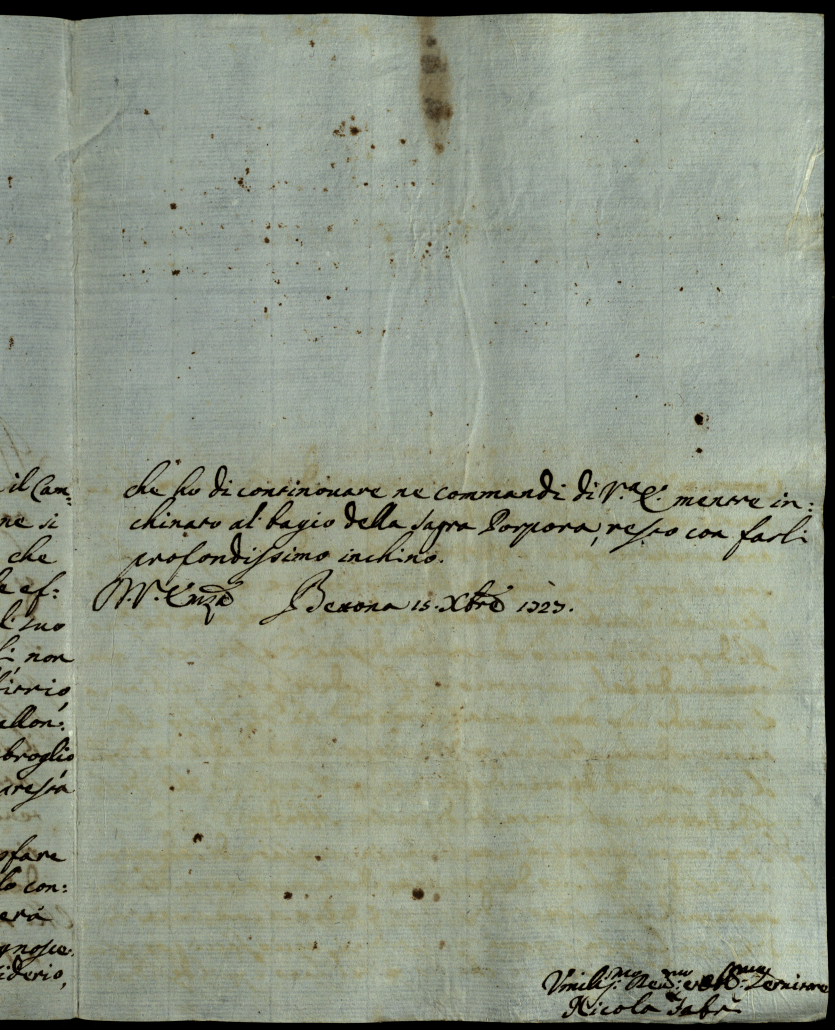 il Cam:
ne si
che
ef:
suo
non
allon:
broglio
ofare
lo con:
erà
gnosce
iderio,
che ho di continouare ne commandi di V.ª E. mentre in:
chinato al bagio della sagra Porpora, resto con farli
profondissimo inchino.
Di V. Emza Betona 15. Xbre 1727.
Vmiliss.mo Deu.mo et Obl.mo Seruitore
Nicola Fabri